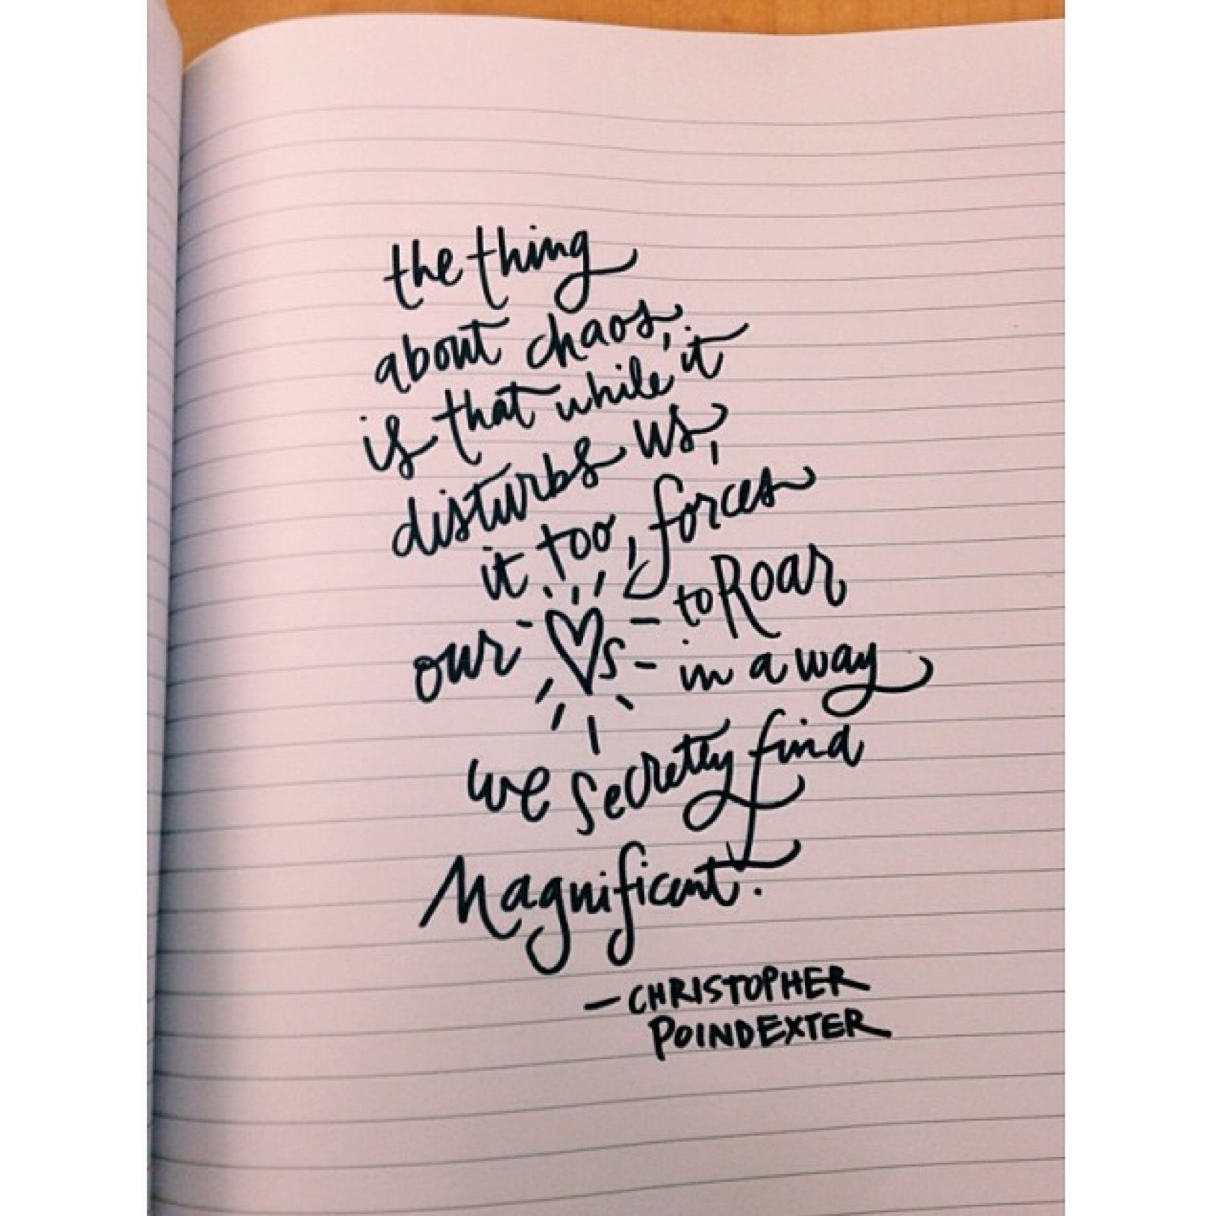 the thing
about chaos,
is that while it
disturbs us,
it too, forces
our ♡s to Roar
in a way
we secretly find
Magnificent.
— CHRISTOPHER
POINDEXTER